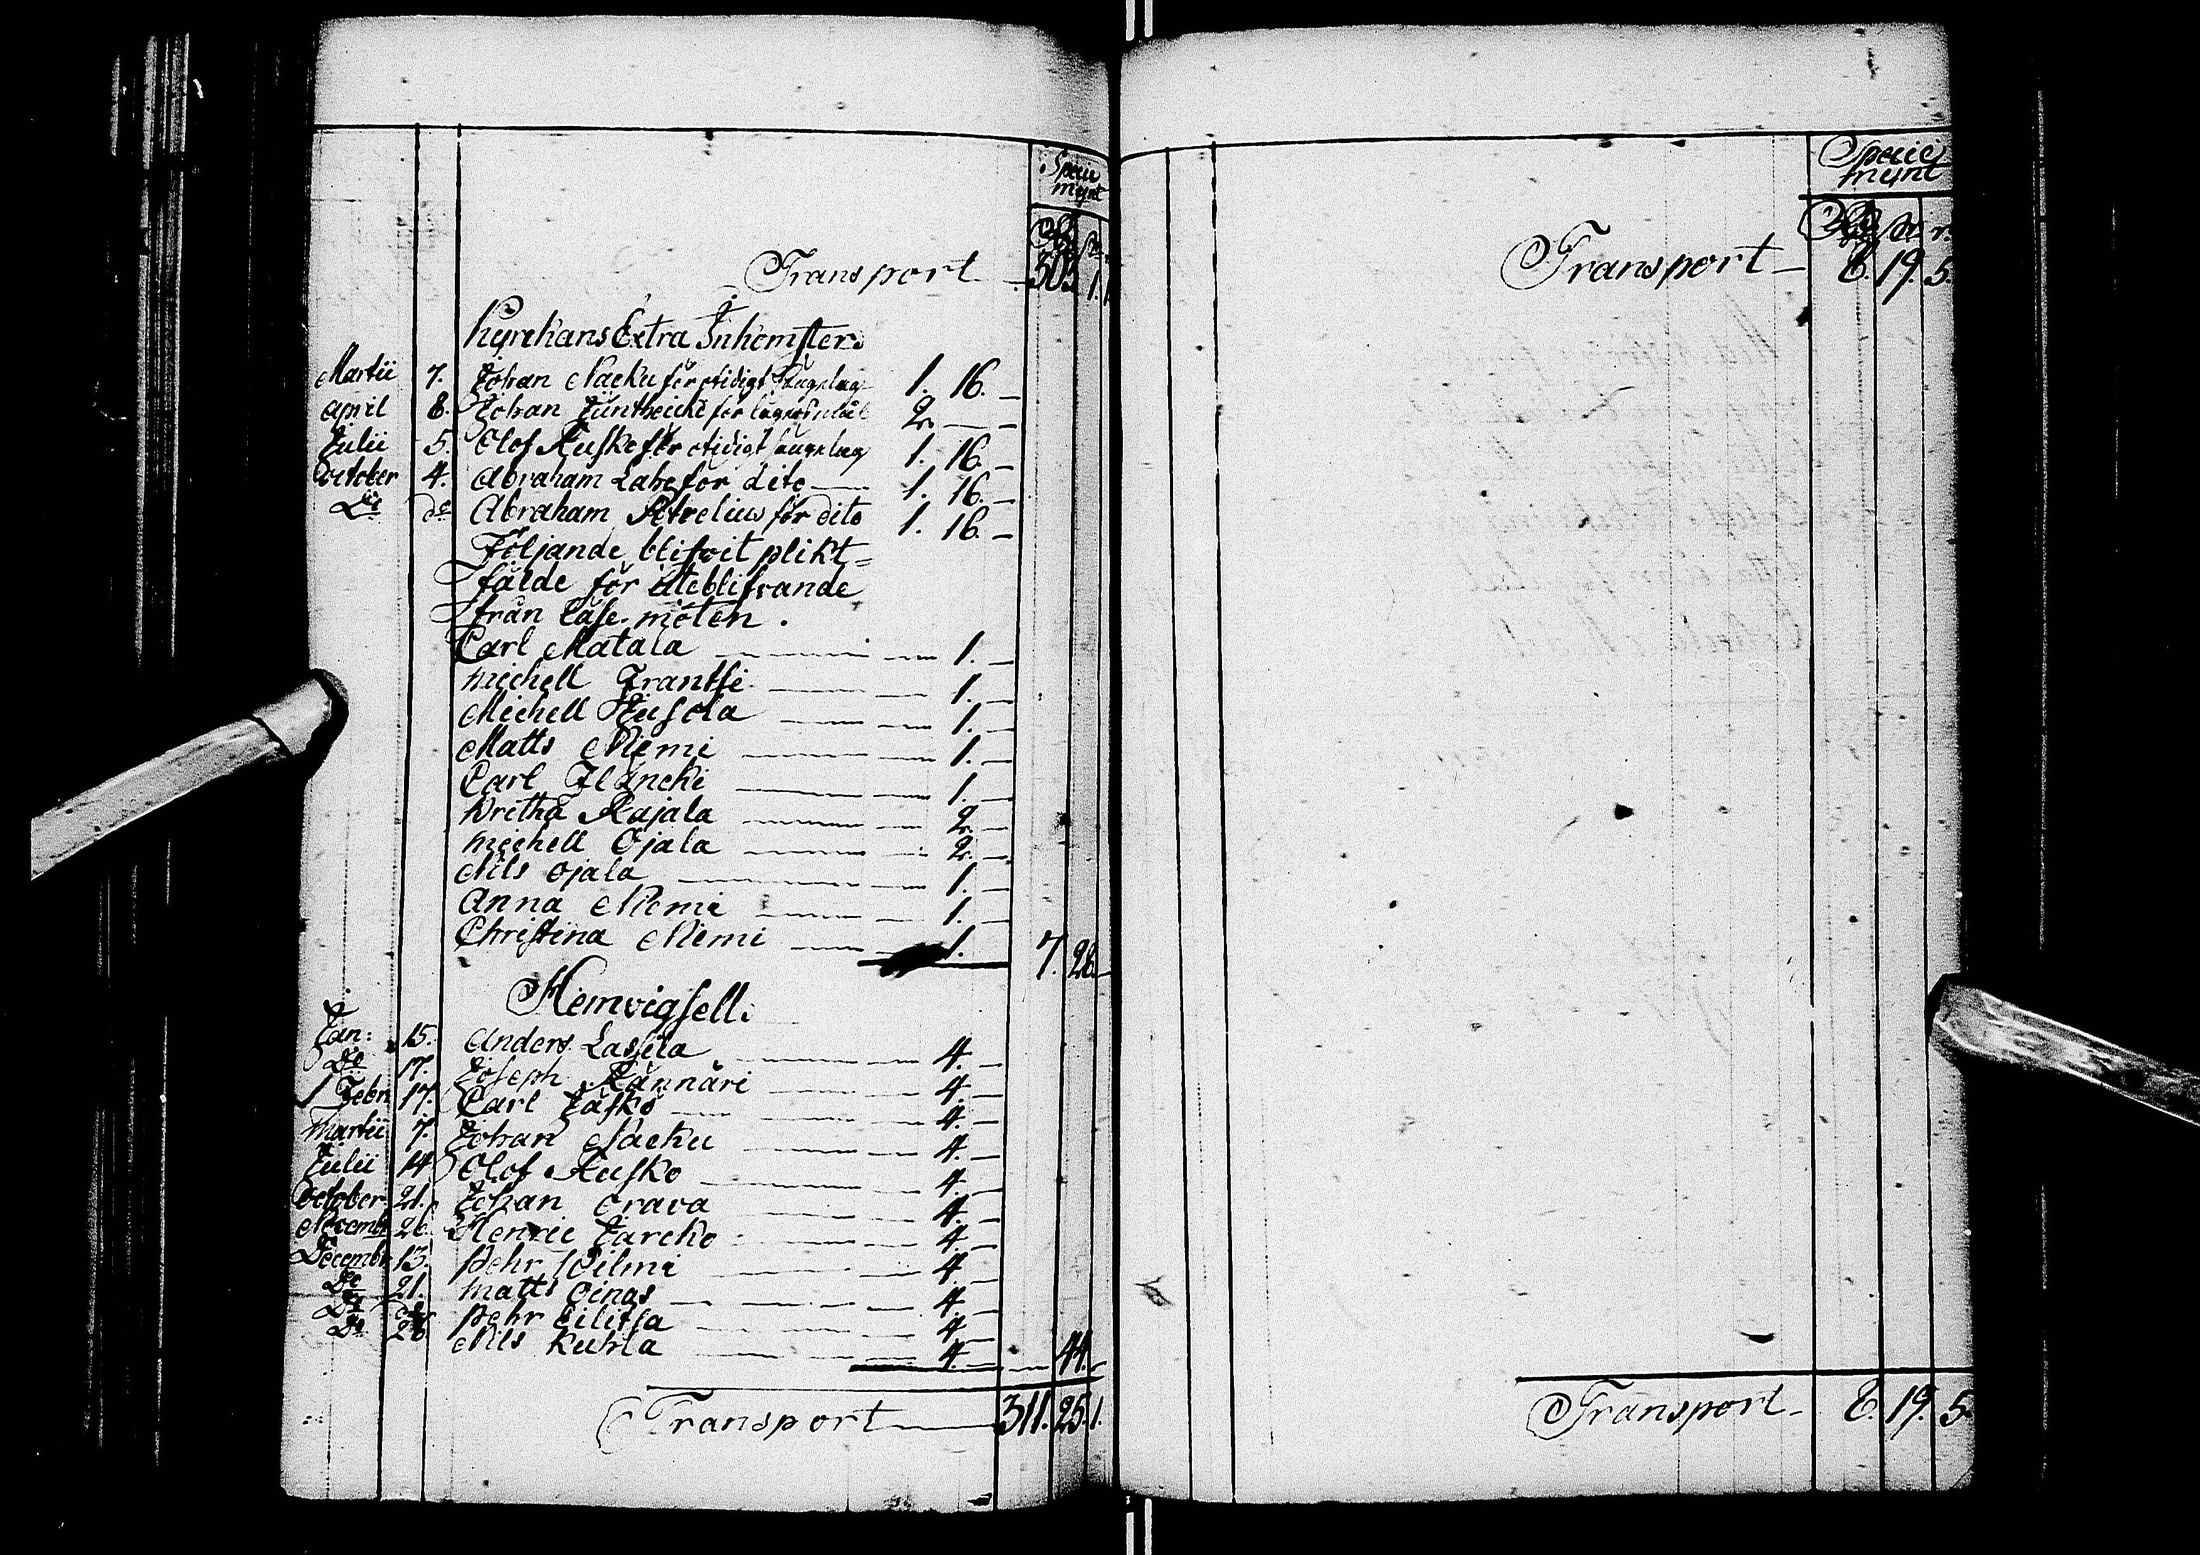 Specie
mynt
Transport 303. 1. 1
Kyrckans Extra Inkomster.
Martii 7. Johan Nacku för otidigt sängelag 1. 16. —
April 8. Johan Juntheicki för lägersmål 2. — —
Julii 5. Olof Rusko för otidigt sängelag 1. 16. —
October 4. Abraham Labe för dito 1. 16. —
Do do Abraham Petrelius för dito 1. 16. —
Följande blifvit plikt-
fälde för uteblifvande
från läse möten.
Carl Matala — 1. —
Michell Frantsi — 1. —
Michell Husola — 1. —
Matts Niemi — 1. —
Carl — 1. —
Bretha Rajala — 2. —
Michell Ojala — 2. —
Nils Ojala — 1. —
Anna Niemi — 1. —
Christina Niemi — 1. 7. 28. —
Hemvigsell.
Jan: 15. Anders Lassila — 4. —
Do 17. Joseph Kännäri — 4. —
Febr 17. Carl Jäskö — 4. —
Martii 7. Johan Nacku — 4. —
Julii 14 Olof Rusko — 4. —
October 21. Johan Orava — 4. —
Novembr 26. Henric Jarcko — 4. —
Decembr 13. Pehr Wilmi — 4. —
Do 21. Matts Oinas — 4. —
Do Pehr Eilitsa — 4. —
Do 26 Nils Kuhla — 4. — 44. —
Transport 311. 25. 1.
Specie
mynt
Transport — 8. 19. 5.
Transport — 8. 19. 5